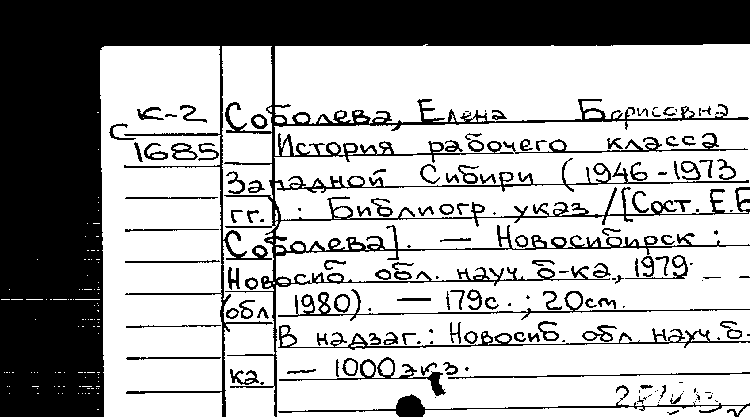 К-2 Соболева, Елена Борисовна
С
1685 История рабочего класса
Западной Сибири (1946-1973
гг.) : Библиогр. указ. /[Сост. Е.Б
Соболева]. — Новосибирск :
Новосиб. обл. науч. б-ка, 1979
(обл. 1980). — 179с. ; 20см.
В надзаг.: Новосиб. обл. науч. б-
ка. — 1000 экз.